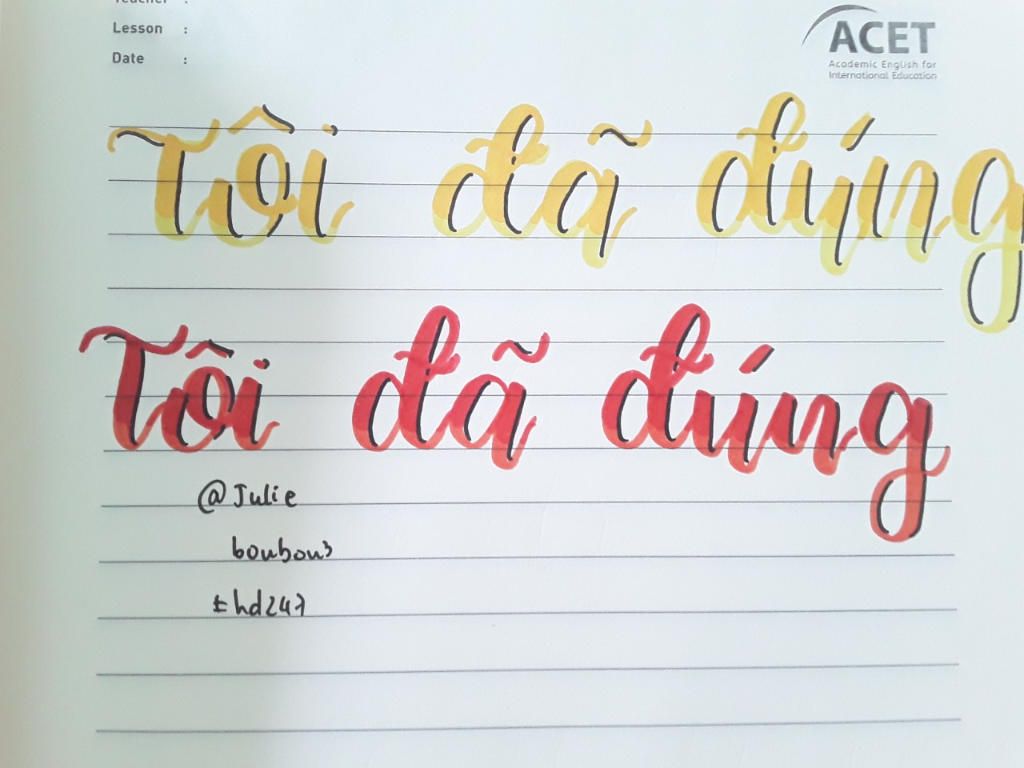 Teacher :
Lesson :
Date :
ACET
Academic English for
International Education
Tôi đã đúng
Tôi đã đúng
@Julie
bonbon3
#hd247